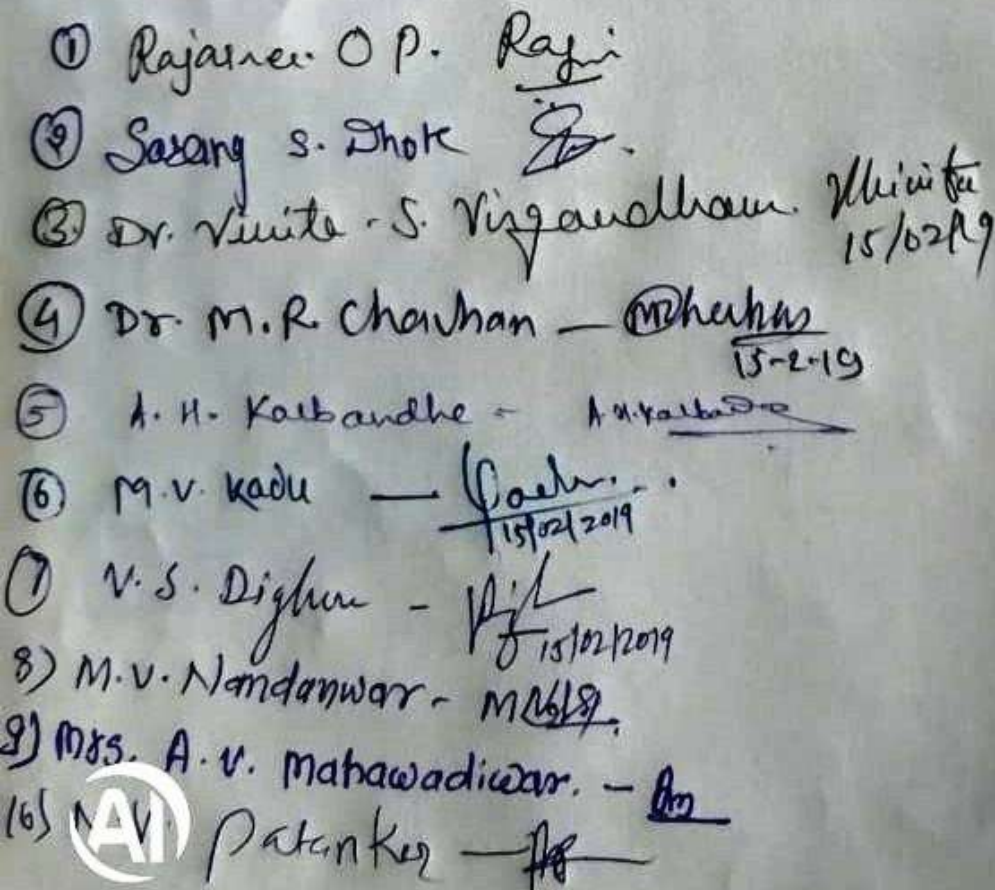 ① Rajasree. O P. Raji
② Sarang S. Dhok
③ Dr. Vinita. S. Virgandham. Vhinita
15/02/19
④ Dr. M.R. Chavhan —
15-2-19
⑤ A. H. Kalbandhe - A.H.Kalbandhe
⑥ M.V. Kadu —
15/02/2019
⑦ V.S. Dighore -
15/02/2019
8) M.V. Nandanwar -
9) Mrs. A.V. Mahawadiwar. -
10) Patanker —
AI